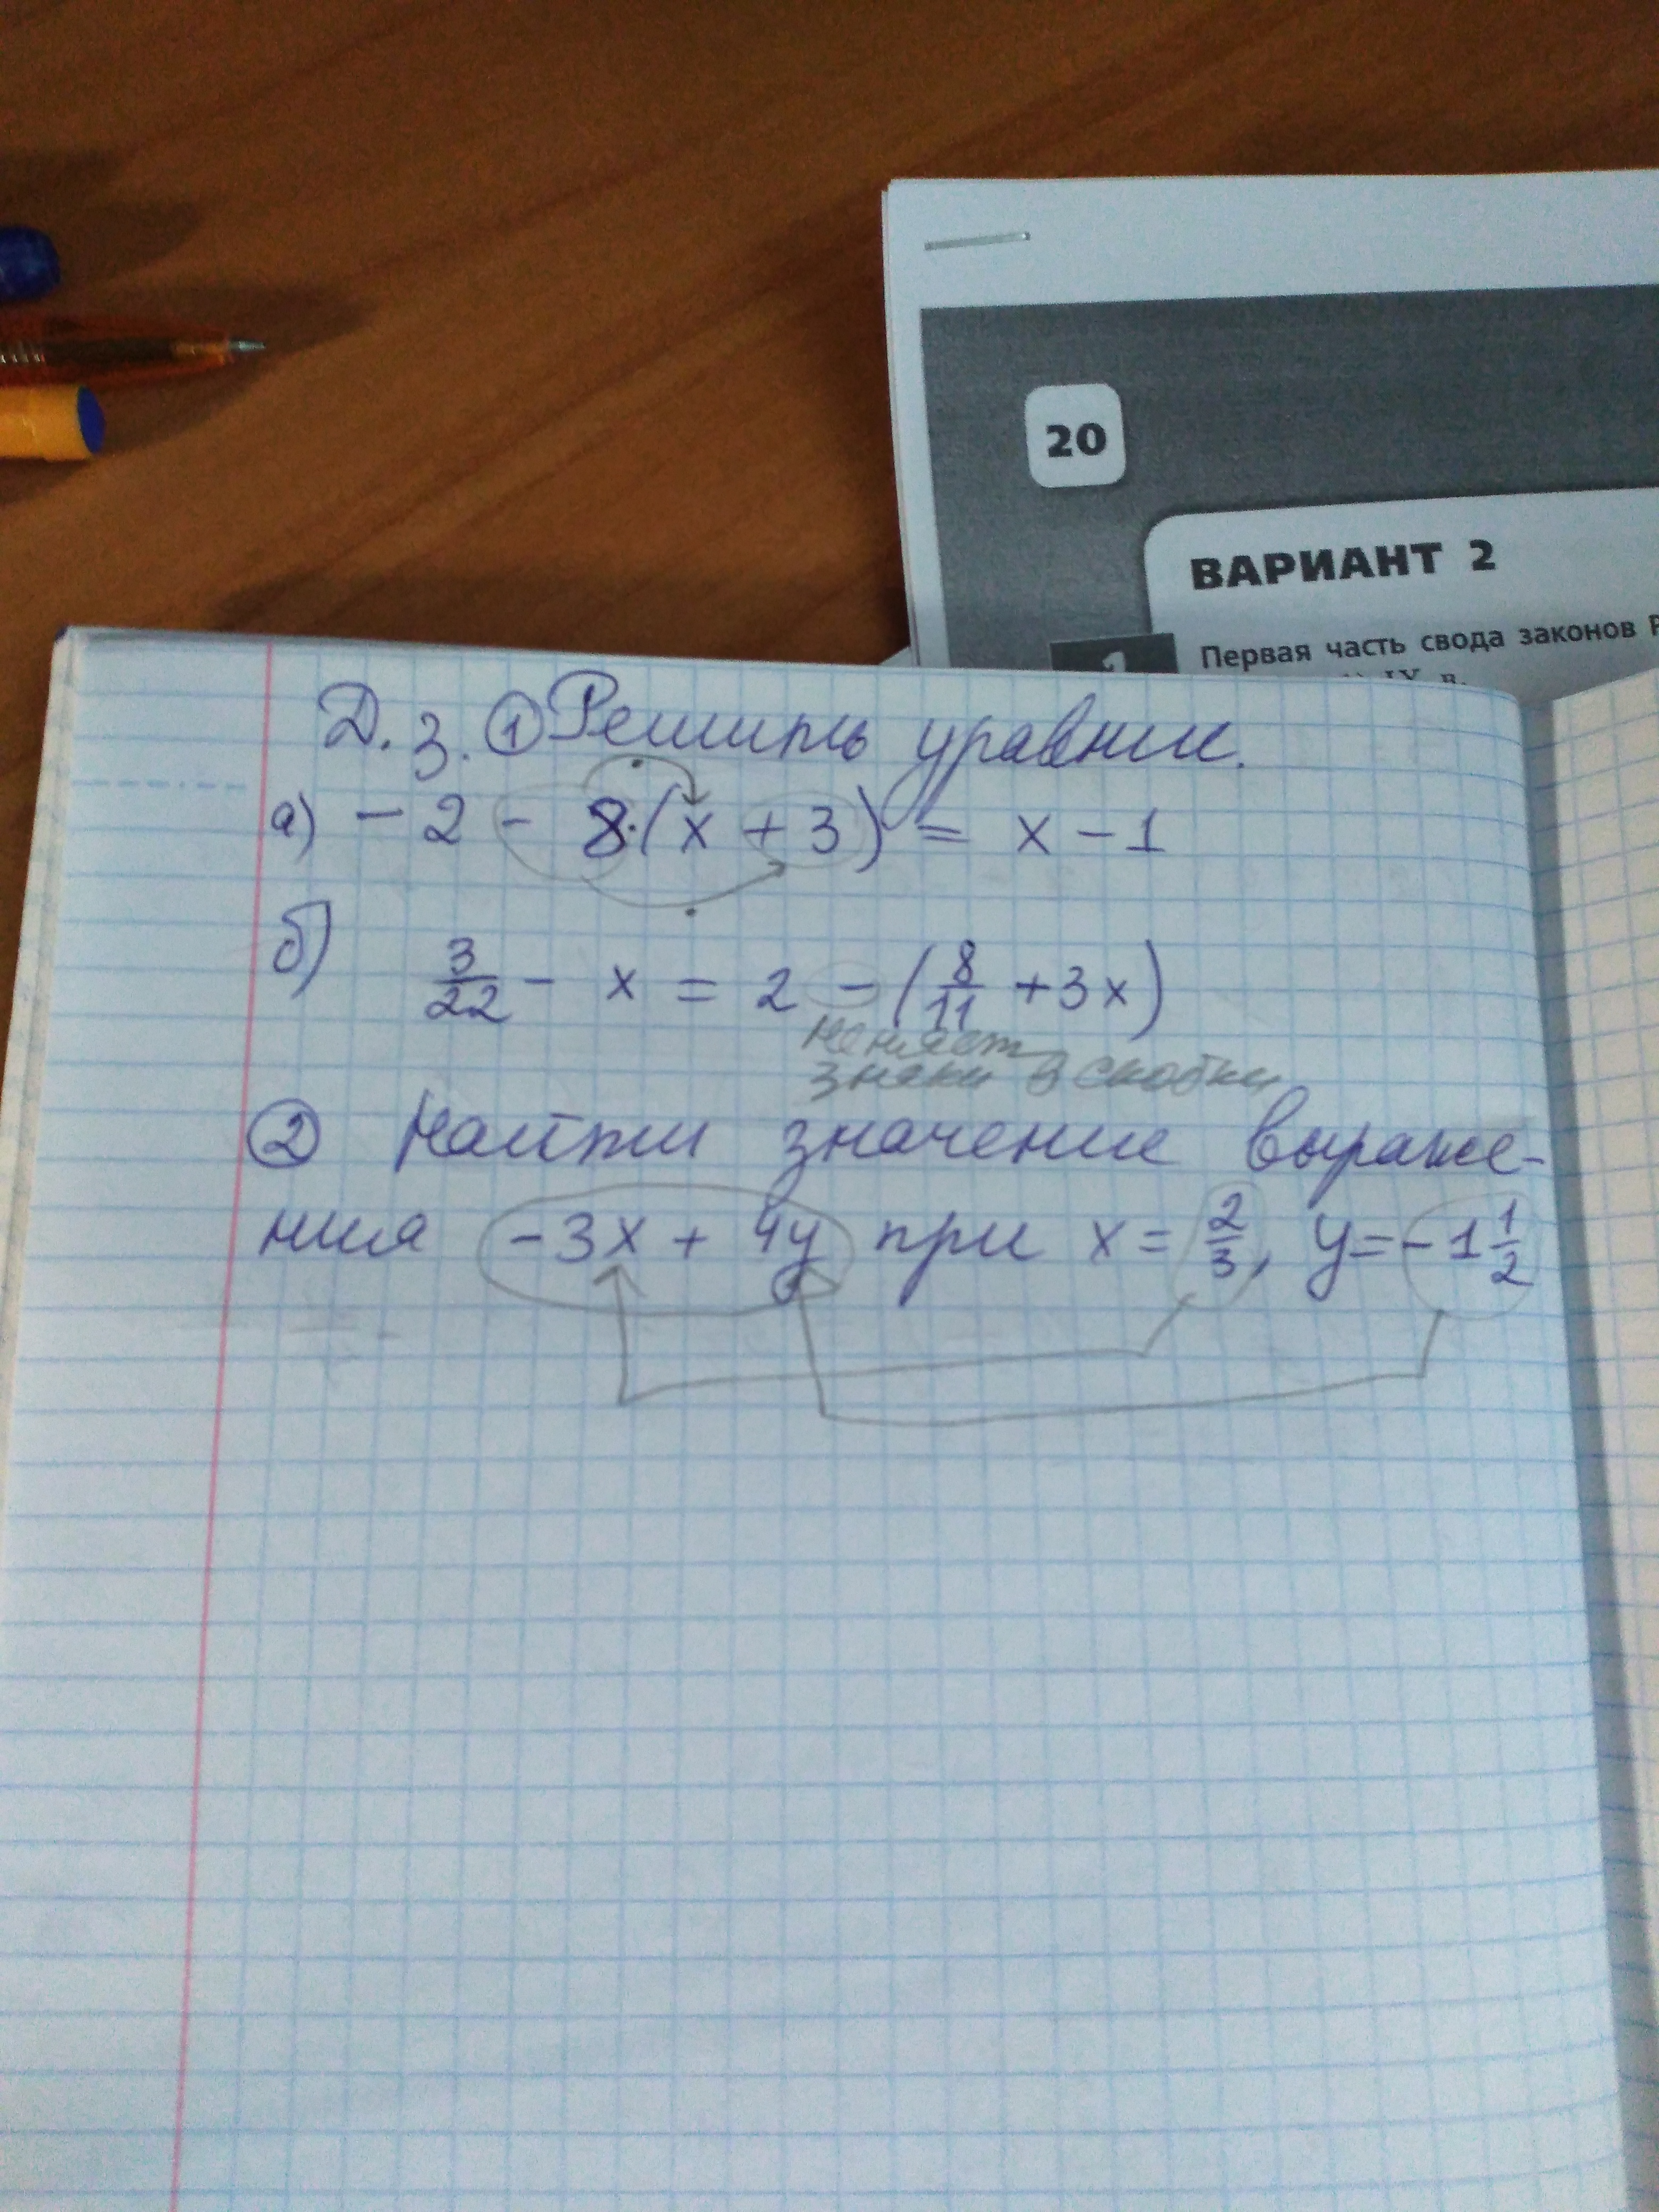 20
ВАРИАНТ 2
1
Первая часть свода законов
IV в.
Д.з. ① Решить уравние.
а) - 2 - 8·(x + 3) = x - 1
б) 3/22 - x = 2 - (8/11 + 3x)
меняет
знаки в скобки
② Найти значение выраже-
ния -3x + 4y при x = 2/3, y = -1 1/2